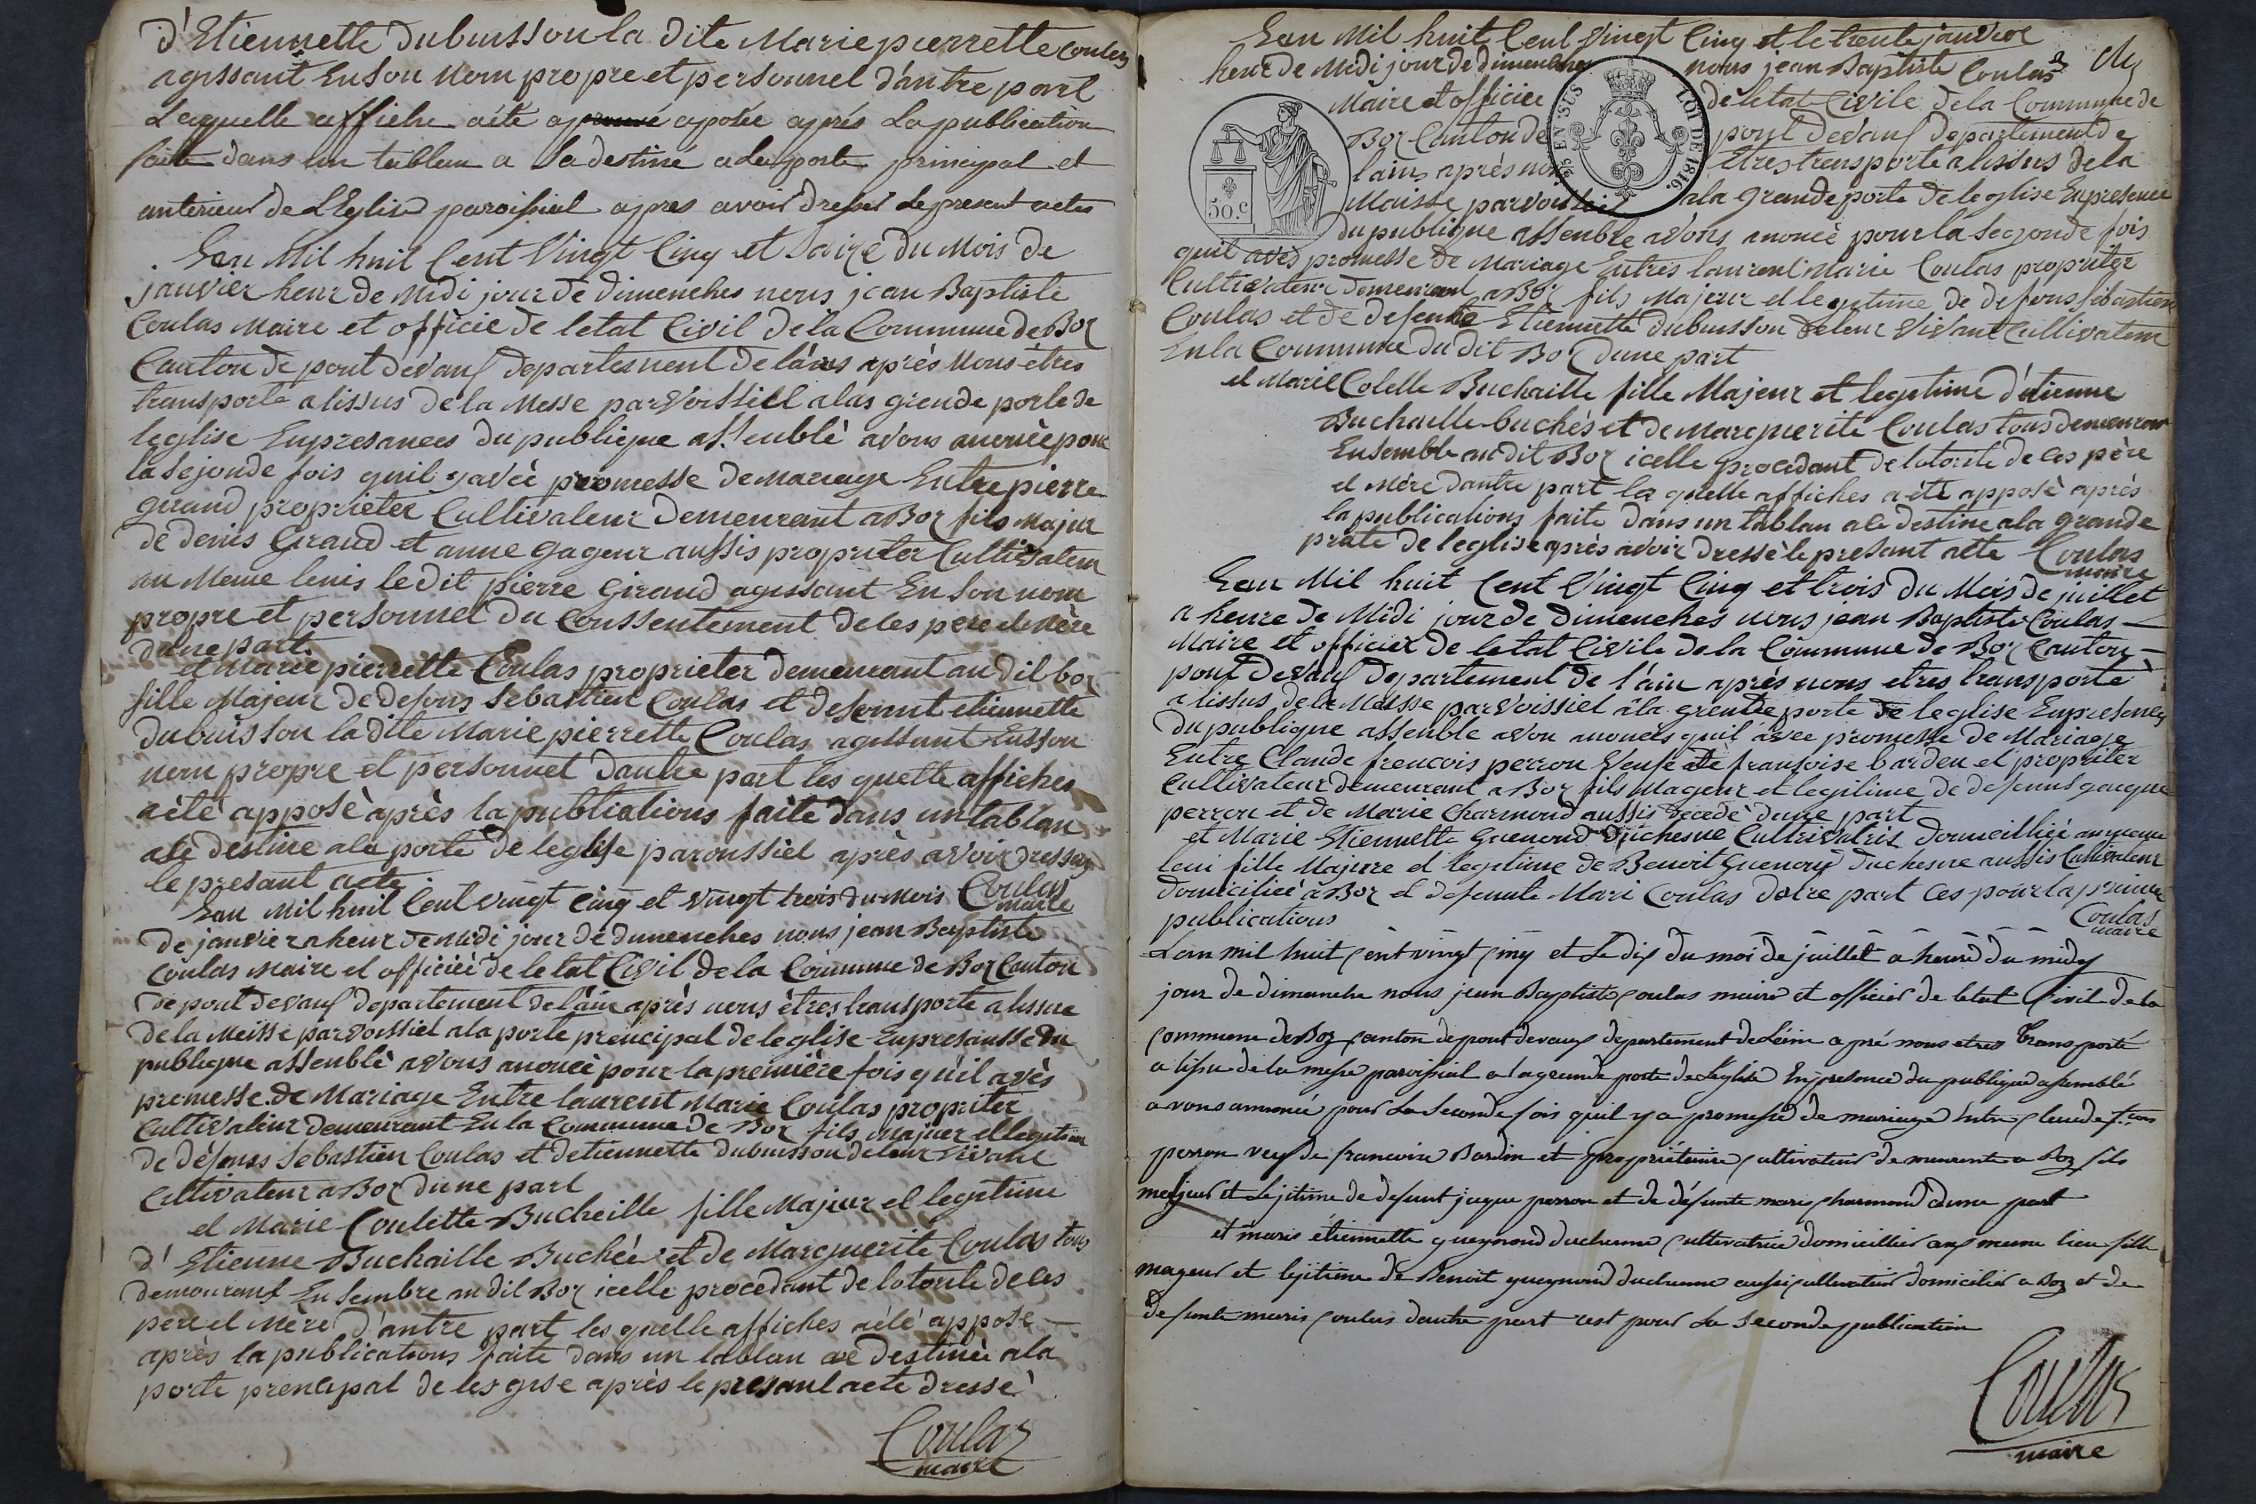 d'Etiennette dubuisson la dite Marie pierrette Coulas
agissant En son Nom propre et personnel d'autre part
Laquelle affiche a été aposée aprés La publication
faite dans un tableau a la destiné a la porte principal et
anterieur de L'Eglise paroissial apres avoir dresser Le present actes
Lan Mil huit Cent Vingt Cinq et saize du Mois de
janvier heur de Midi jour de dimenches nous jean Baptiste
Coulas Maire et officie de letat Civil de la Commune de Boz
Canton de pont devaux departement de láins après Nous êtres
transporte a lissus de la Messe parvoissiel a las grende porte de
leglise Enpresances du publique assenblè avons anoncè pour
la sejonde fois quil y avèe promesse de Mariage Entre pierre
giraud proprieter Cultivateur demeurant a Boz fils Majeur
de denis Giraud et anne gageur aussis propriter Cultivateur
au Meme lenis le dit pierre Giraud agissant En son nom
propre et personnel du Conssentement de ces pere et Mère
dune part
et Marie pierrette Coulas proprieter demeurant au dit boz
fille Majeur de defons Sebastien Coulas et defeunt etiennette
dubuisson la dite Marie pierrette Coulas agissant Ensson
nom propre et personnet dautre part les quelle affiches
a été apposè après la publications faite dans un tablau
ale destine ala porte de leglise paroussiel après avoir dresser
le presant acte Coulas
maire
Lan Mil huit Cent vingt Cinq et vingt trois du Mois
de janvier a heur de Midi jour de dimenches nous jean Baptiste
Coulas Maire et officiér de letat Civil de la Commune de Boz Canton
de pont devaux departement de láin après nous êtres transporte a lissue
de la Meisse parvoissiel ala porte prencipal de leglise Enpresansse du
publique assenblè avons anoncè pour la première fois qu'il avès
promesse de Mariage Entre laurent Marie Coulas propriter
Cultivateur demeurant En la Commune de Boz fils Majeur et legitime
de défonss Sebastien Coulas et detiennette dubuisson de leur vivant
Cultivateur a Boz dune part
et Marie Coulette Bucheille fille Majeur et legitime
d' Etienne Buchaille Buchée et de Marguerite Coulas tous
demourant Ensembre au dit Boz icelle procedant de latorite de ces
père et Mere d'autre part les quelle affiches a été appose
après la publications faite dans un tablau ale destinée ala
porte prencipal de leg ise après le presant acte dressé
Coulas
maire
Lan Mil huit Cent Vingt Cinq et le trente janvier
heur de Midi jour de dimenches nous jean Baptiste Coulas
Maire et officier de letat Civile de la Commune de
Boz Canton de pont devaux departement de
lains après nous êtres transporte a lissus de la
Maisse parvoissiel ala grande porte de leglise Enpresence
du publique assenble avons anoncè pour la segonde fois
quil avès promesse de Mariage Entres laurent Marie Coulas propriter
Cultivateur demeurant a Boz fils Majeur et legitime de defons sebastien
Coulas et de defeunte Etiennette dubuisson de leur vivant Cultivateur
En la Commune du dit Boz dune part
et Marie Colette Buchaille fille Majeur et legitime d'etienne
Buchaille buchès et de Marguerite Coulas tous demeurant
Ensemble au dit Boz icelle procedant de latorite de ces père
et Mére dautre part la quelle affiches a été apposè après
la publications faite dans un tablau ale destine ala grande
prote de leglise après avoir dressè le presant acte Coulas
maire
Lan Mil huit Cent Vingt Cinq et trois du Mois de juillet
a heure de Midi jour de dimenches nous jean Baptiste Coulas
Maire et officier de letat Civile de la Commune de Boz Canton
pont devaux departement de l'ain après nous etres transporte
a lissus de la Maisse parvoissiel a la grende porte de leglise Enpresences
du publique assenble avon anoncés quil avee promesse de Mariage
Entre Claude francois perron Veuf de françoise barden et propriter
Cultivateur demeurant a Boz fils Mageur et legitime de defeuns jacque
perron et de Marie Charmond aussis decede dune part
et Marie Etiennette Guenoud duchesne Cultivatris domeiciliée au meme
leui fille Majeure et legitime de Benoit Guenoud duchesne aussis Cultivateur
domiciliée a Boz et defeunte Mari Coulas dotre part Ces pour la premiere
publications Coulas
maire
Lan mil huit Cent vingt Cinq et Le dix du moi de juillet a heure du midy
jour de dimanche nous jean Baptiste Coulas maire et officier de letat Civil de la
Commune de Boz Canton de pont devaux departement de Leain apré nous etres transporté
a lissue de la messe paroissial a la grande porte de Leglise En presence du publique assemblé
avons annoncé pour La Seconde fois quil y a promesse de mariage Entre Claude f:cois
perron veuf de francoise Bardin et propriétaire Cultivateur demeurente a Boz fils
majeur et Lejitime de defunt jaque perron et de défunte marie Charmond dune part
et marie étiennette gueynoud duchenne Cultivatrice domicillier aux meme lieu fille
mageur et lejitime de Benoit gueynoud duchenne aussi cultivateur domicilier a Boz et de
defunte marie Coulas dautre part cest pour La Seconde publication
Coulas
maire
50.C
25 EN SUS
LOI DE 1816.